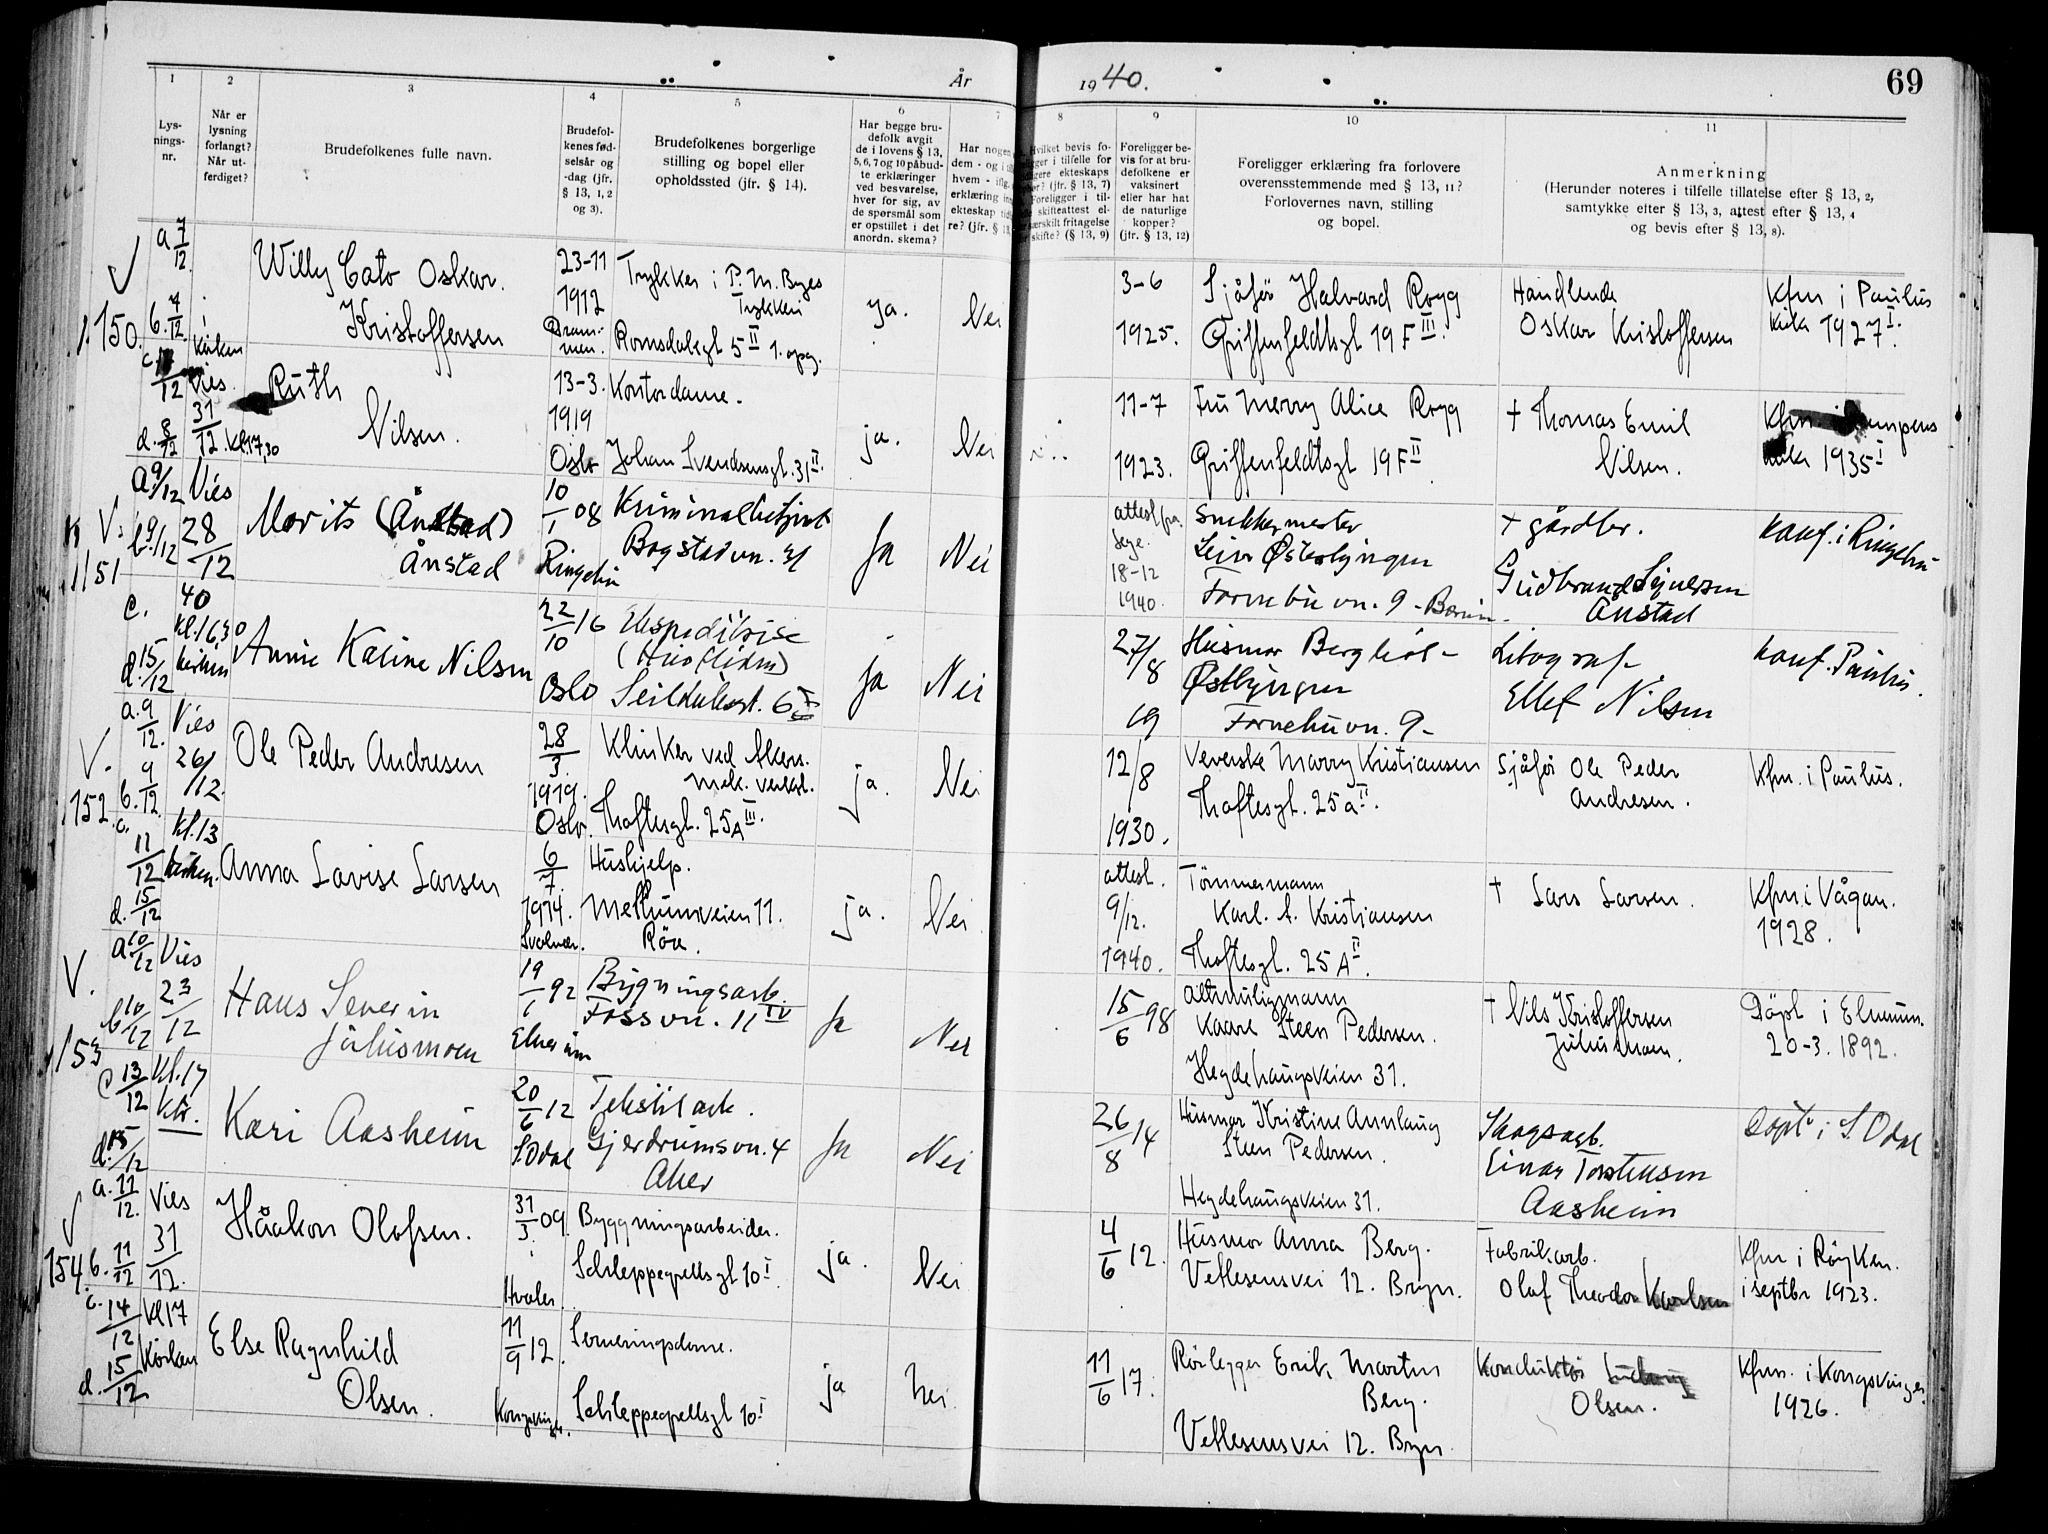 År 1940.
69
1
2
3
4
5
6
7
8
9
10
11
Lys-
nings-
nr.
Når er
lysning
forlangt?
Når ut-
ferdiget?
Brudefolkenes fulle navn.
Brudefol-
kenes fød-
selsår og
-dag (jfr.
§ 13, 1, 2
og 3).
Brudefolkenes borgerlige
stilling og bopel eller
opholdssted (jfr. § 14).
Har begge bru-
defolk avgit
de i lovens § 13,
5, 6, 7 og 10 påbud-
te erklæringer
ved besvarelse,
hver for sig, av
de spørsmål som
er opstillet i det
anordn. skema?
Har nogen
dem - og i
hvem - iflg.
erklæring
ekteskap
re? (jfr. §
Hvilket bevis fo-
i tilfelle for
ekteskaps
(jfr. § 13, 7)
Foreligger i til-
skifteattest el-
særskilt fritagelse
skifte? (§ 13, 9)
Foreligger be-
vis for at bru-
defolkene er
vaksinert
eller har hat
de naturlige
kopper?
(jfr. § 13, 12)
Foreligger erklæring fra forlovere
overensstemmende med § 13, 11?
Forlovernes navn, stilling
og bopel.
Anmerkning
(Herunder noteres i tilfelle tillatelse efter § 13, 2,
samtykke efter § 13, 3, attest efter § 13, 4
og bevis efter § 13, 8).
150.
a 7/12
b. 7/12
c.
d. 8/12
Kirken
Vies
31/12. Kl. 17,30
Willy Cato Oskar
Kristoffersen
23-11
1912
Drammen.
Trykker i P. M. Byes
Trykkeri
Romsdalsgt 5 II 1. opg.
ja.
Nei
3-6
1925.
Sjåfør Halvard Rygg
Griffenfeldtsgt 19 F III.
Handlende
Oskar Kristoffersen
Kfm i Paulus
kirke 1927 I.
Ruth
Nilsen.
13-3.
1919
Oslo
Kontordame.
Johan Svendsensgt. 31 II.
ja.
Nei
11-7
1923.
Fru Merry Alice Rygg
Griffenfeldtsgt 19 F II
† Thomas Emil
Nilsen.
Kfm. i Kampens
kirke 1935 I
151
a 9/12
b 9/12
c.
d. 15/12
Vies
28/12
40
kl. 1630
kirken
Morits (Ånstad)
Ånstad
10/1 08
Ringebu
Kriminalbetjent
Bogstadvn. 31
Ja
Nei
attest fra
lege.
18-12
1940.
Snekkermester
Leiv Østbyngen
Fornebuvn. 9 - Bærum.
† gårdbr.
Gudbrand Syversen
Ånstad
konf. i Ringebu
Annie Karine Nilsen
22/10 16
Oslo
Ekspeditrise
(Husflidsn)
Seilduksgt. 6
Ja
Nei
27/8
19
Husmor Bergliot
Østbyngen
Fornebuvn. 9 -
Litograf
Ellef Nilsen
konf. Paulus.
152.
a. 9/12.
b. 9/12.
c. 11/12
d. 15/12
Vies
26/12.
kl. 13
kirken.
Ole Peder Andresen
28/3.
1919.
Oslo.
Klinker ved Akers
mek. verkst.
Thoftesgt. 25A III.
ja.
Nei
12/8
1930.
Veverske Marry Kristiansen
Thoftesgt. 25a II.
Sjåfør Ole Peder
Andresen.
Kfm. i Paulus.
Anna Lovise Larsen
6/7.
1914.
Svolvær.
Hushjelp.
Mellumveien 11.
Røa.
ja.
Nei
attest.
9/12.
1940.
Tømmermann
Karl. A. Kristiansen
Thoftesgt. 25 A II.
† Lars Larsen.
Kfm. i Vågan.
1928.
153
a 10/12
b 10/12
c 13/12
d. 15/12
Vies
23/12
kl. 17
ktr.
Hans Severin
Juliusmoen
19/1 92
Elverum
Bygningsarb.
Fossvn. 11 IV
Ja
Nei
15/6 98
Altmuligmann
Kaare Steen Pedersen.
Hegdehaugsveien 31.
† Nils Kristoffersen
Juliusmoen.
Døpt i Elverum.
20-3. 1892.
Kari Aasheim
20/6 12
S. Odal
Tekstilarb.
Gjerdrumsvn. 4
Aker
Ja
Nei
26/8 14
Husmor Kristine Annlaug
Steen Pedersen.
Hegdehaugsveien 31.
Skogsarb.
Einar Torstensen
Aasheim
Døpt i S. Odal
154.
a. 11/12.
b. 11/12
c. 14/12
d. 15/12
Vies
31/12.
Kl 17
Kirken
Håakon Olafsen.
31/3. 09.
Hvaler
Byggningsarbeider.
Schleppegrellsgt 10 I
ja.
Nei
4/6 12.
Husmor Anna Berg.
Vetlesensvei 12. Bryn.
Fabrikarb.
Olaf Theodor Karlsen
Kfm i Røyken.
i septbr 1923.
Else Ragnhild
Olsen.
11/9 12.
Kongsvinger.
Serveringsdame.
Schleppegrellsgt 10 I
ja
Nei.
11/6 17.
Rørlegger Erik Martin
Berg.
Vetlesensvei 12. Bryn.
Konduktør Ludvig
Olsen.
Kfm. i Kongsvinger.
1926.